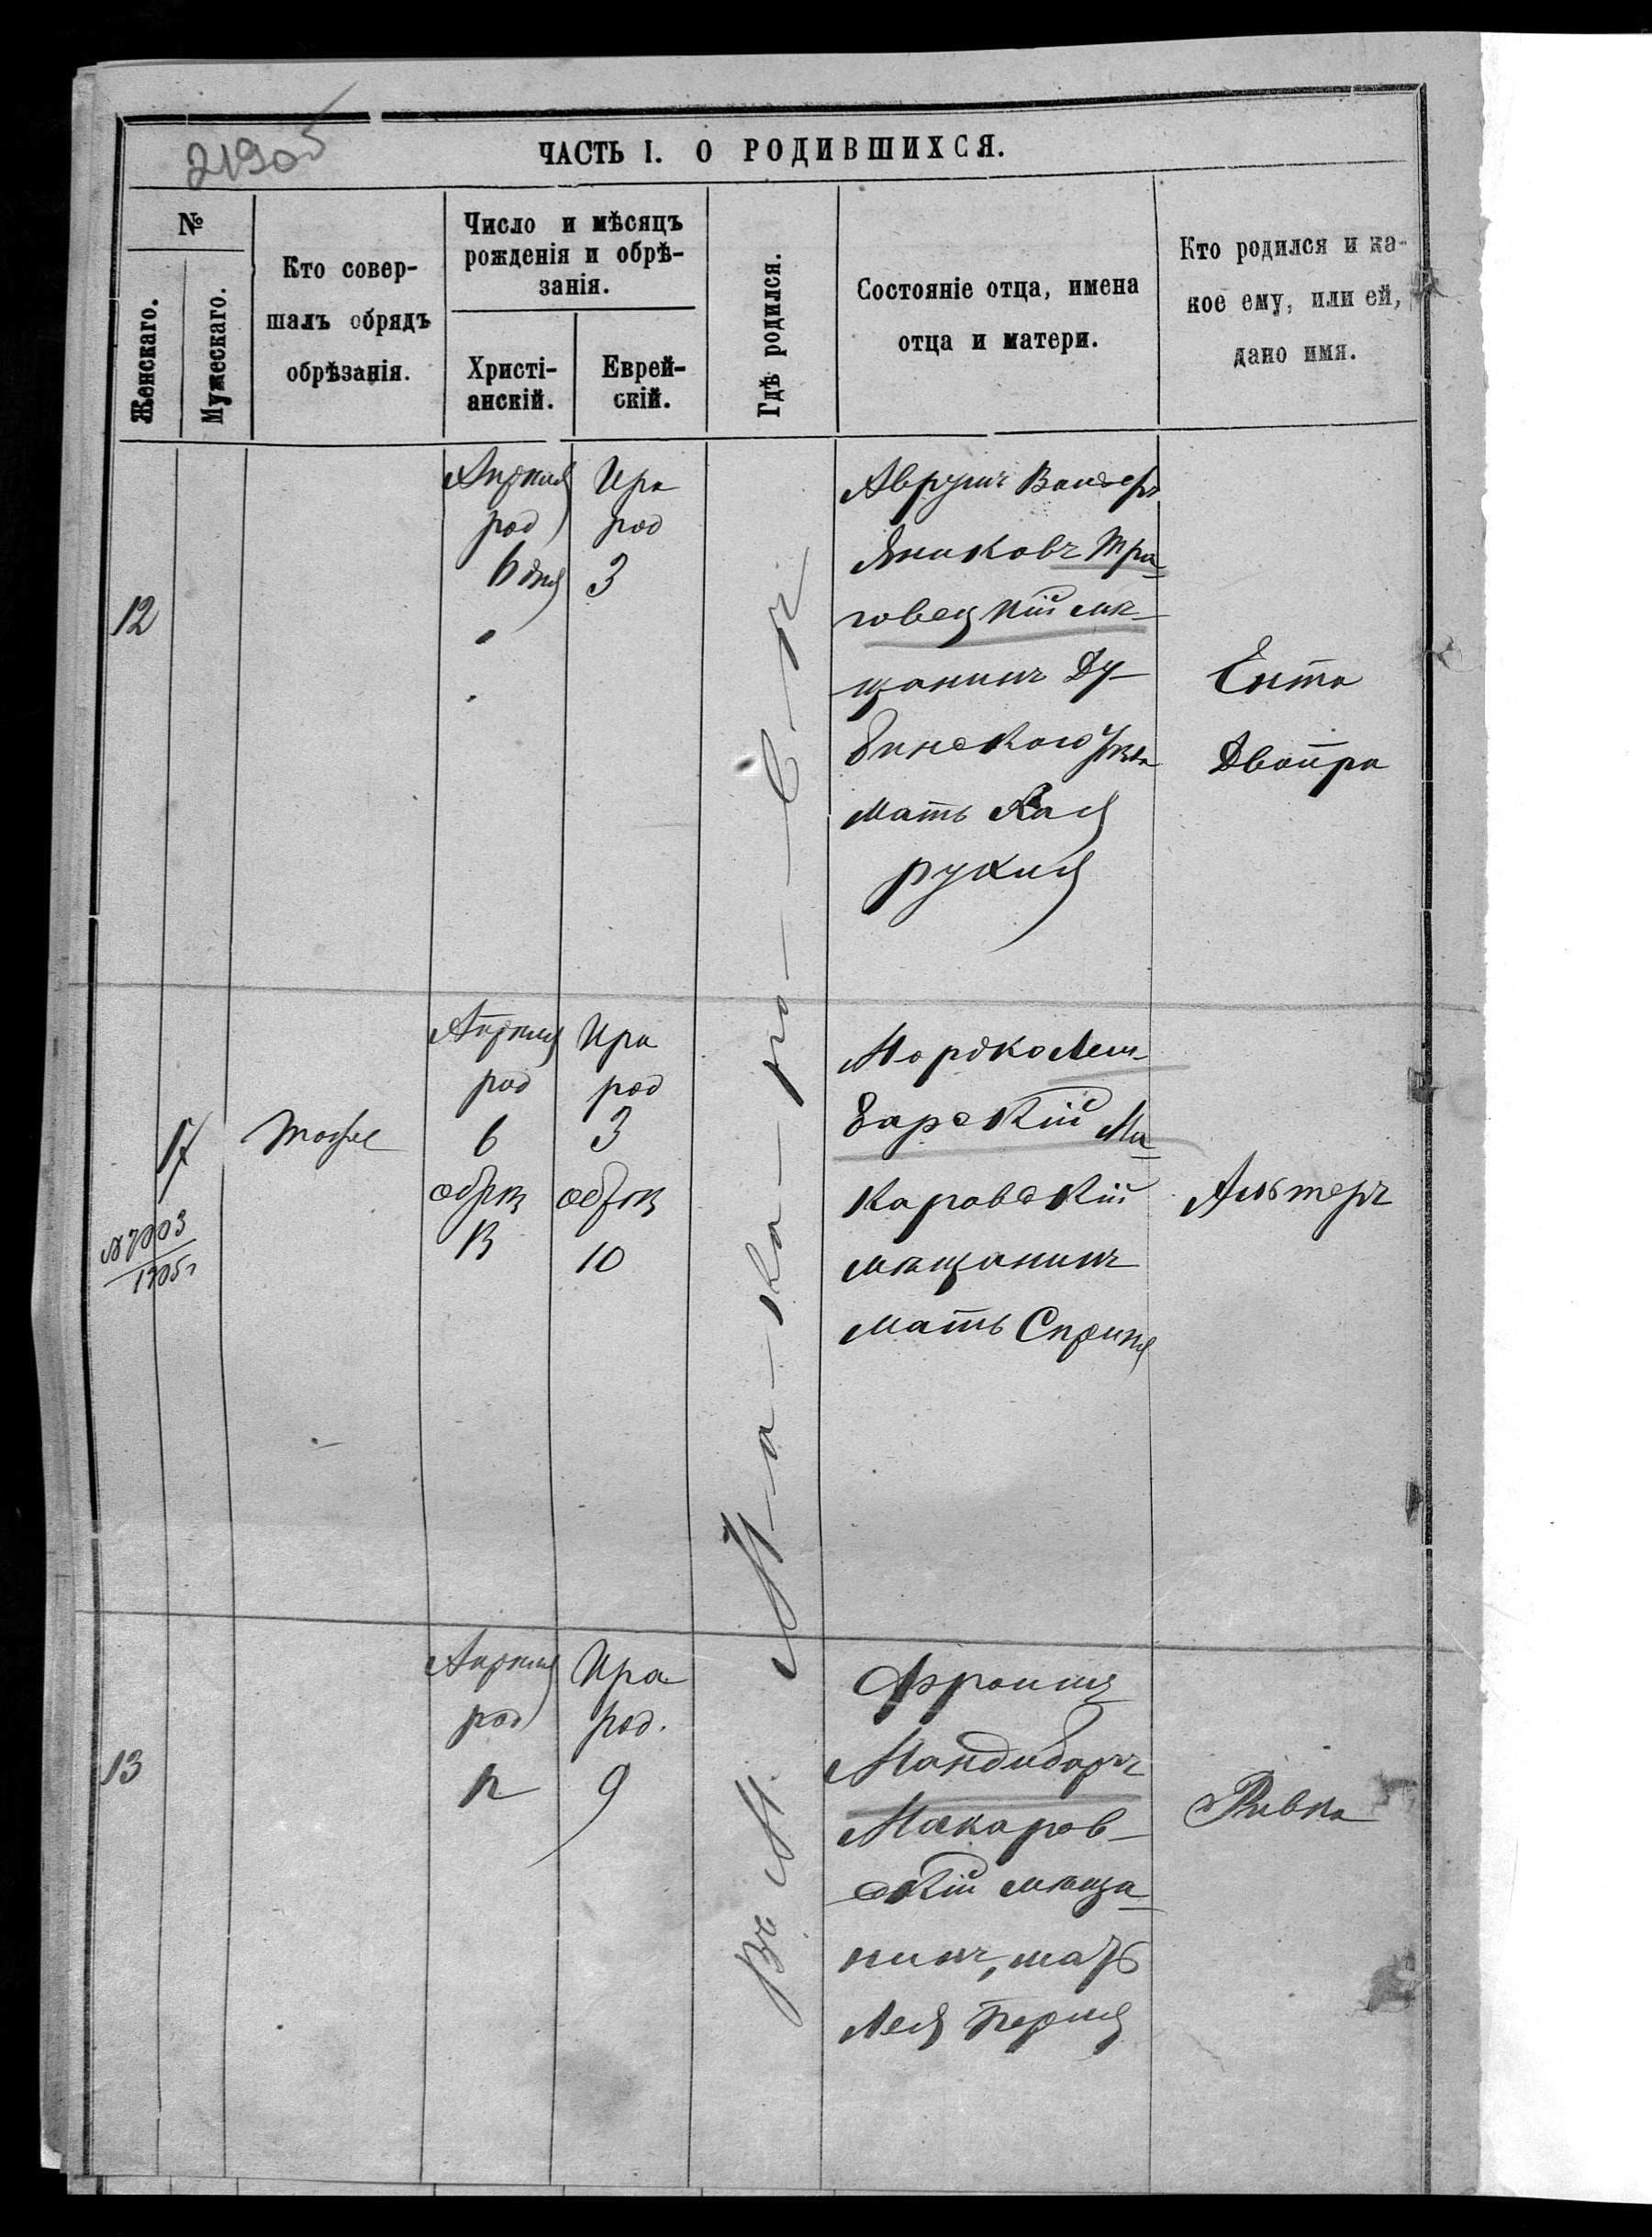 21905
ЧАСТЬ I. О РОДИВШИХСЯ.
№
Женскаго.
Мужескаго.
Кто совер-
шалъ обрядъ
обрѣзанія.
Число и мѣсяцъ
рожденія и обрѣ-
занія.
Христі-
анскій.
Еврей-
скій.
Гдѣ родился.
Состояніе отца, имена
отца и матери.
Кто родился и ка-
кое ему, или ей,
дано имя.
12
Апрѣля
род
6 дня
Ира
род
3
Аврумъ
Янковъ Тра-
говецкій мѣ-
щанинъ Ду-
бинскаго уѣзда
Мать Хая
рухля
Ента
Двойра
17
№ 7003
1905 г
Тоже
Апрѣля
род
6
обрѣз
13
Ира
род
3
обрѣз
10
Мордко Лем-
барскій Ма-
каровскій
мѣщанинъ
Мать Сприня
Альтеръ
13
Апрѣля
род
12
Ира
род.
9
Фроимъ
Мандибаръ
Макаров-
скій мѣща-
нинъ, мать
Лея Перля
Ривка
Въ М. Ма-ка-ро-в-ѣ